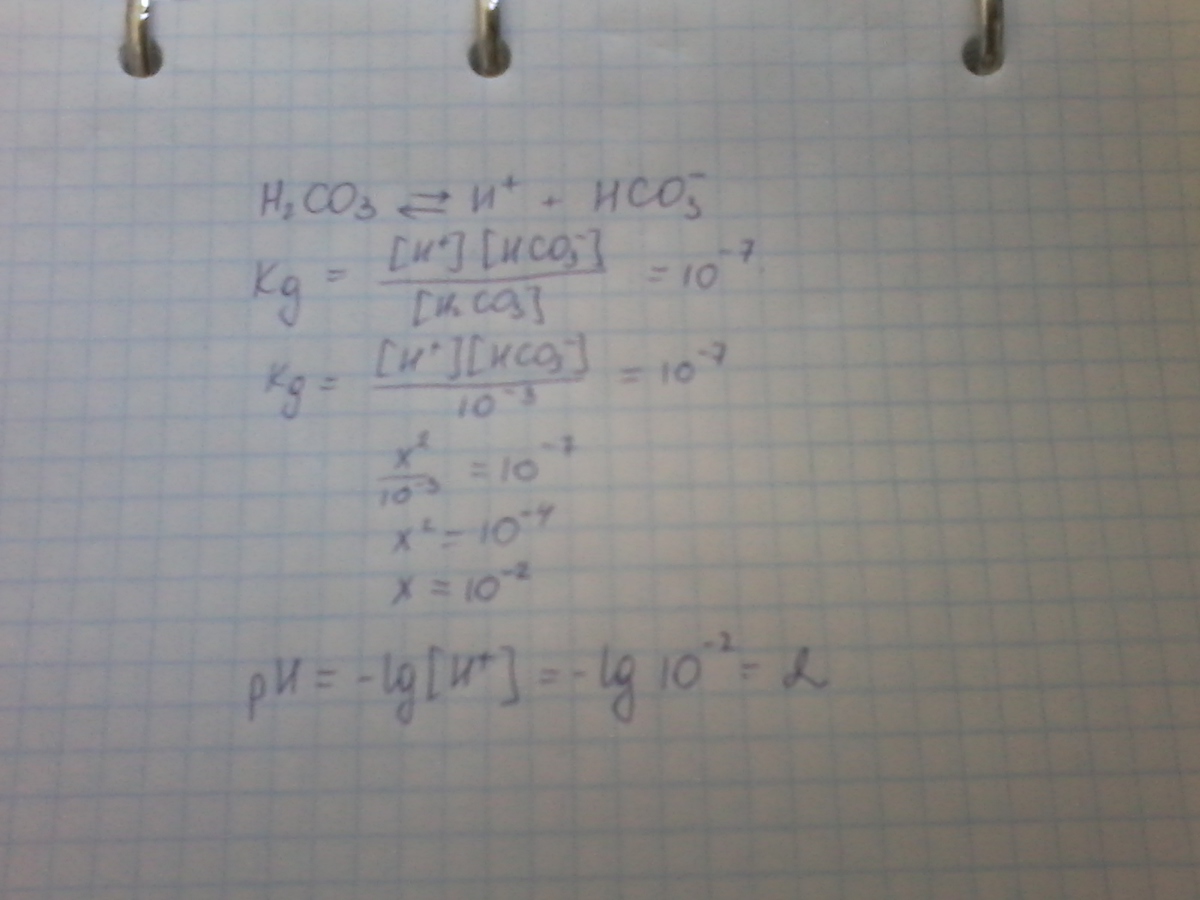 H₂CO₃ ⇄ H⁺ + HCO₃⁻
Kg = [H⁺][HCO₃⁻] / [H₂CO₃] = 10⁻⁷
Kg = [H⁺][HCO₃⁻] / 10⁻³ = 10⁻⁷
x² / 10⁻³ = 10⁻⁷
x² = 10⁻⁴
x = 10⁻²
pH = -lg[H⁺] = -lg 10⁻² = 2